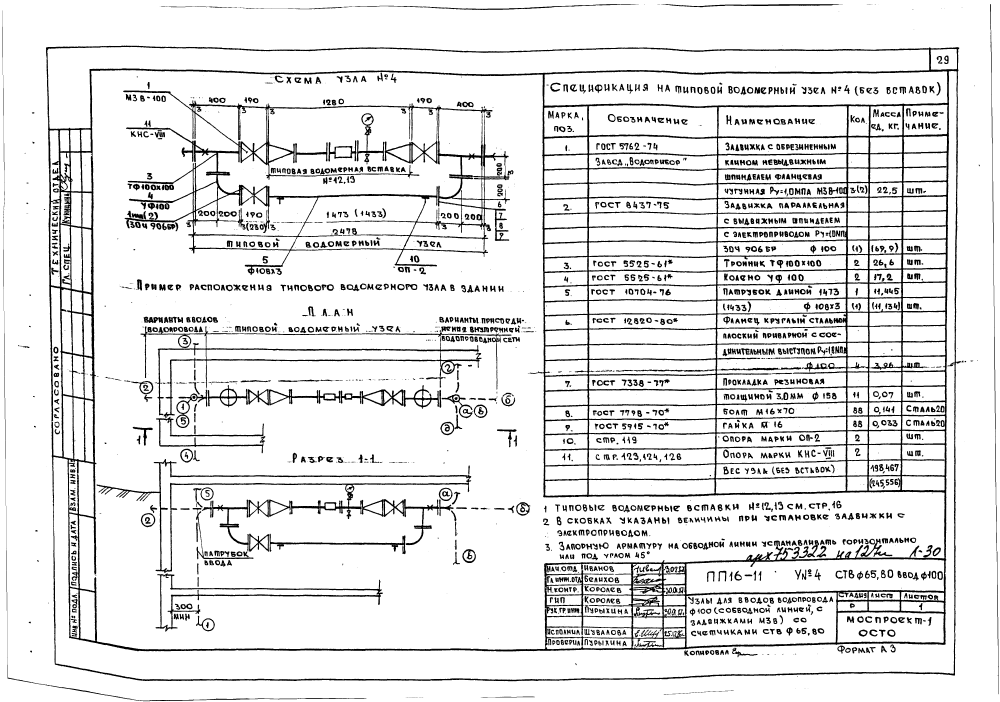 29
СХЕМА УЗЛА №4
1
МЗВ-100
400 190 1280 190 400
3 3 3 3 3 3
11
КНС-VIII
3
ТФ100х100
4
УФ100
1 или (2)
(30Ч 906БР)
ТИПОВАЯ ВОДОМЕРНАЯ ВСТАВКА
№12,13
200 200
6
7
8
9
200 200 190 1473 (1433) 200 200
3 3(280) 3
2478
ТИПОВОЙ ВОДОМЕРНЫЙ УЗЕЛ
5
Ф108х3
10
ОП-2
ПРИМЕР РАСПОЛОЖЕНИЯ ТИПОВОГО ВОДОМЕРНОГО УЗЛА В ЗДАНИИ
ПЛАН
ВАРИАНТЫ ВВОДОВ
ВОДОПРОВОДА
ТИПОВОЙ ВОДОМЕРНЫЙ УЗЕЛ
ВАРИАНТЫ ПРИСОЕДИ-
НЕНИЯ ВНУТРЕННЕЙ
ВОДОПРОВОДНОЙ СЕТИ
3
2 2
1 а в б
5
4 д
1 1
РАЗРЕЗ 1-1
5 а
2 б
ПАТРУБОК
ВВОДА
в
300
МИН
1
СПЕЦИФИКАЦИЯ НА ТИПОВОЙ ВОДОМЕРНЫЙ УЗЕЛ №4 (БЕЗ ВСТАВОК)
МАРКА, ПОЗ. ОБОЗНАЧЕНИЕ НАИМЕНОВАНИЕ КОЛ МАССА ЕД, КГ. ПРИМЕ-ЧАНИЕ.
1. ГОСТ 5762-74 ЗАДВИЖКА С ОБРЕЗИНЕННЫМ
ЗАВОД „ВОДОПРИБОР" КЛИНОМ НЕВЫДВИЖНЫМ
ШПИНДЕЛЕМ ФЛАНЦЕВАЯ
ЧУГУННАЯ Ру=1,0МПА МЗВ-100 3(2) 22,5 ШТ.
2. ГОСТ 8437-75 ЗАДВИЖКА ПАРАЛЛЕЛЬНАЯ
С ВЫДВИЖНЫМ ШПИНДЕЛЕМ
С ЭЛЕКТРОПРИВОДОМ Ру=1,0МПА
30Ч 906БР Ф100 (1) (69,9) ШТ.
3. ГОСТ 5525-61* ТРОЙНИК ТФ100х100 2 26,6 ШТ.
4. ГОСТ 5525-61* КОЛЕНО УФ 100 2 17,2 ШТ.
5. ГОСТ 10704-76 ПАТРУБОК ДЛИНОЙ 1473 1 11,445
(1433) Ф 108х3 (1) (11,134) ШТ.
6. ГОСТ 12820-80* ФЛАНЕЦ КРУГЛЫЙ СТАЛЬНОЙ
ПЛОСКИЙ ПРИВАРНОЙ С СОЕ-
ДИНИТЕЛЬНЫМ ВЫСТУПОМ Ру=1,0МПА
Ф100 4 3,96 ШТ.
7. ГОСТ 7338-77* ПРОКЛАДКА РЕЗИНОВАЯ
ТОЛЩИНОЙ 3,0ММ Ф158 11 0,07 ШТ.
8. ГОСТ 7798-70* БОЛТ М16х70 88 0,141 СТАЛЬ20
9. ГОСТ 5915-70* ГАЙКА М 16 88 0,033 СТАЛЬ20
10. СТР. 119 ОПОРА МАРКИ ОП-2 2 ШТ.
11. СТР. 123,124,126 ОПОРА МАРКИ КНС-VIII 2 ШТ.
ВЕС УЗЛА (БЕЗ ВСТАВОК) 198,467
(245,556)
1 ТИПОВЫЕ ВОДОМЕРНЫЕ ВСТАВКИ №12,13 СМ. СТР.16
2 В СКОБКАХ УКАЗАНЫ ВЕЛИЧИНЫ ПРИ УСТАНОВКЕ ЗАДВИЖКИ С
ЭЛЕКТРОПРИВОДОМ.
3. ЗАПОРНУЮ АРМАТУРУ НА ОБВОДНОЙ ЛИНИИ УСТАНАВЛИВАТЬ ГОРИЗОНТАЛЬНО
ИЛИ ПОД УГЛОМ 45°
арх 753322 на 127л Л-30
НАЧ.ОТД ИВАНОВ
ГЛ.ИНЖ.ОТД БЕЛИХОВ
Н.КОНТР. КОРОЛЕВ
ГИП КОРОЛЕВ
РУК.ГРУПП ПУРЫХИНА
ИСПОЛНИЛ ШУВАЛОВА
ПРОВЕРИЛ ПУРЫХИНА
ПП16-11 УЗ №4 СТВ Ф65,80 ВВОД Ф100
УЗЛЫ ДЛЯ ВВОДОВ ВОДОПРОВОДА
Ф100 (С ОБВОДНОЙ ЛИНИЕЙ, С
ЗАДВИЖКАМИ МЗВ) СО
СЧЕТЧИКАМИ СТВ Ф65,80
СТАДИЯ ЛИСТ ЛИСТОВ
Р 1
МОСПРОЕКТ-1
ОСТО
КОПИРОВАЛ
ФОРМАТ А3
ТЕХНИЧЕСКИЙ ОТДЕЛ
ГЛ. СПЕЦ.
СОГЛАСОВАНО
ВЗАМ. ИНВ.№
ПОДПИСЬ И ДАТА
ИНВ № ПОДЛ.